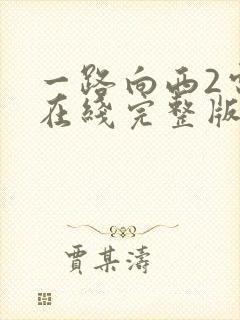 一路向西2
在线完整版
贾某涛